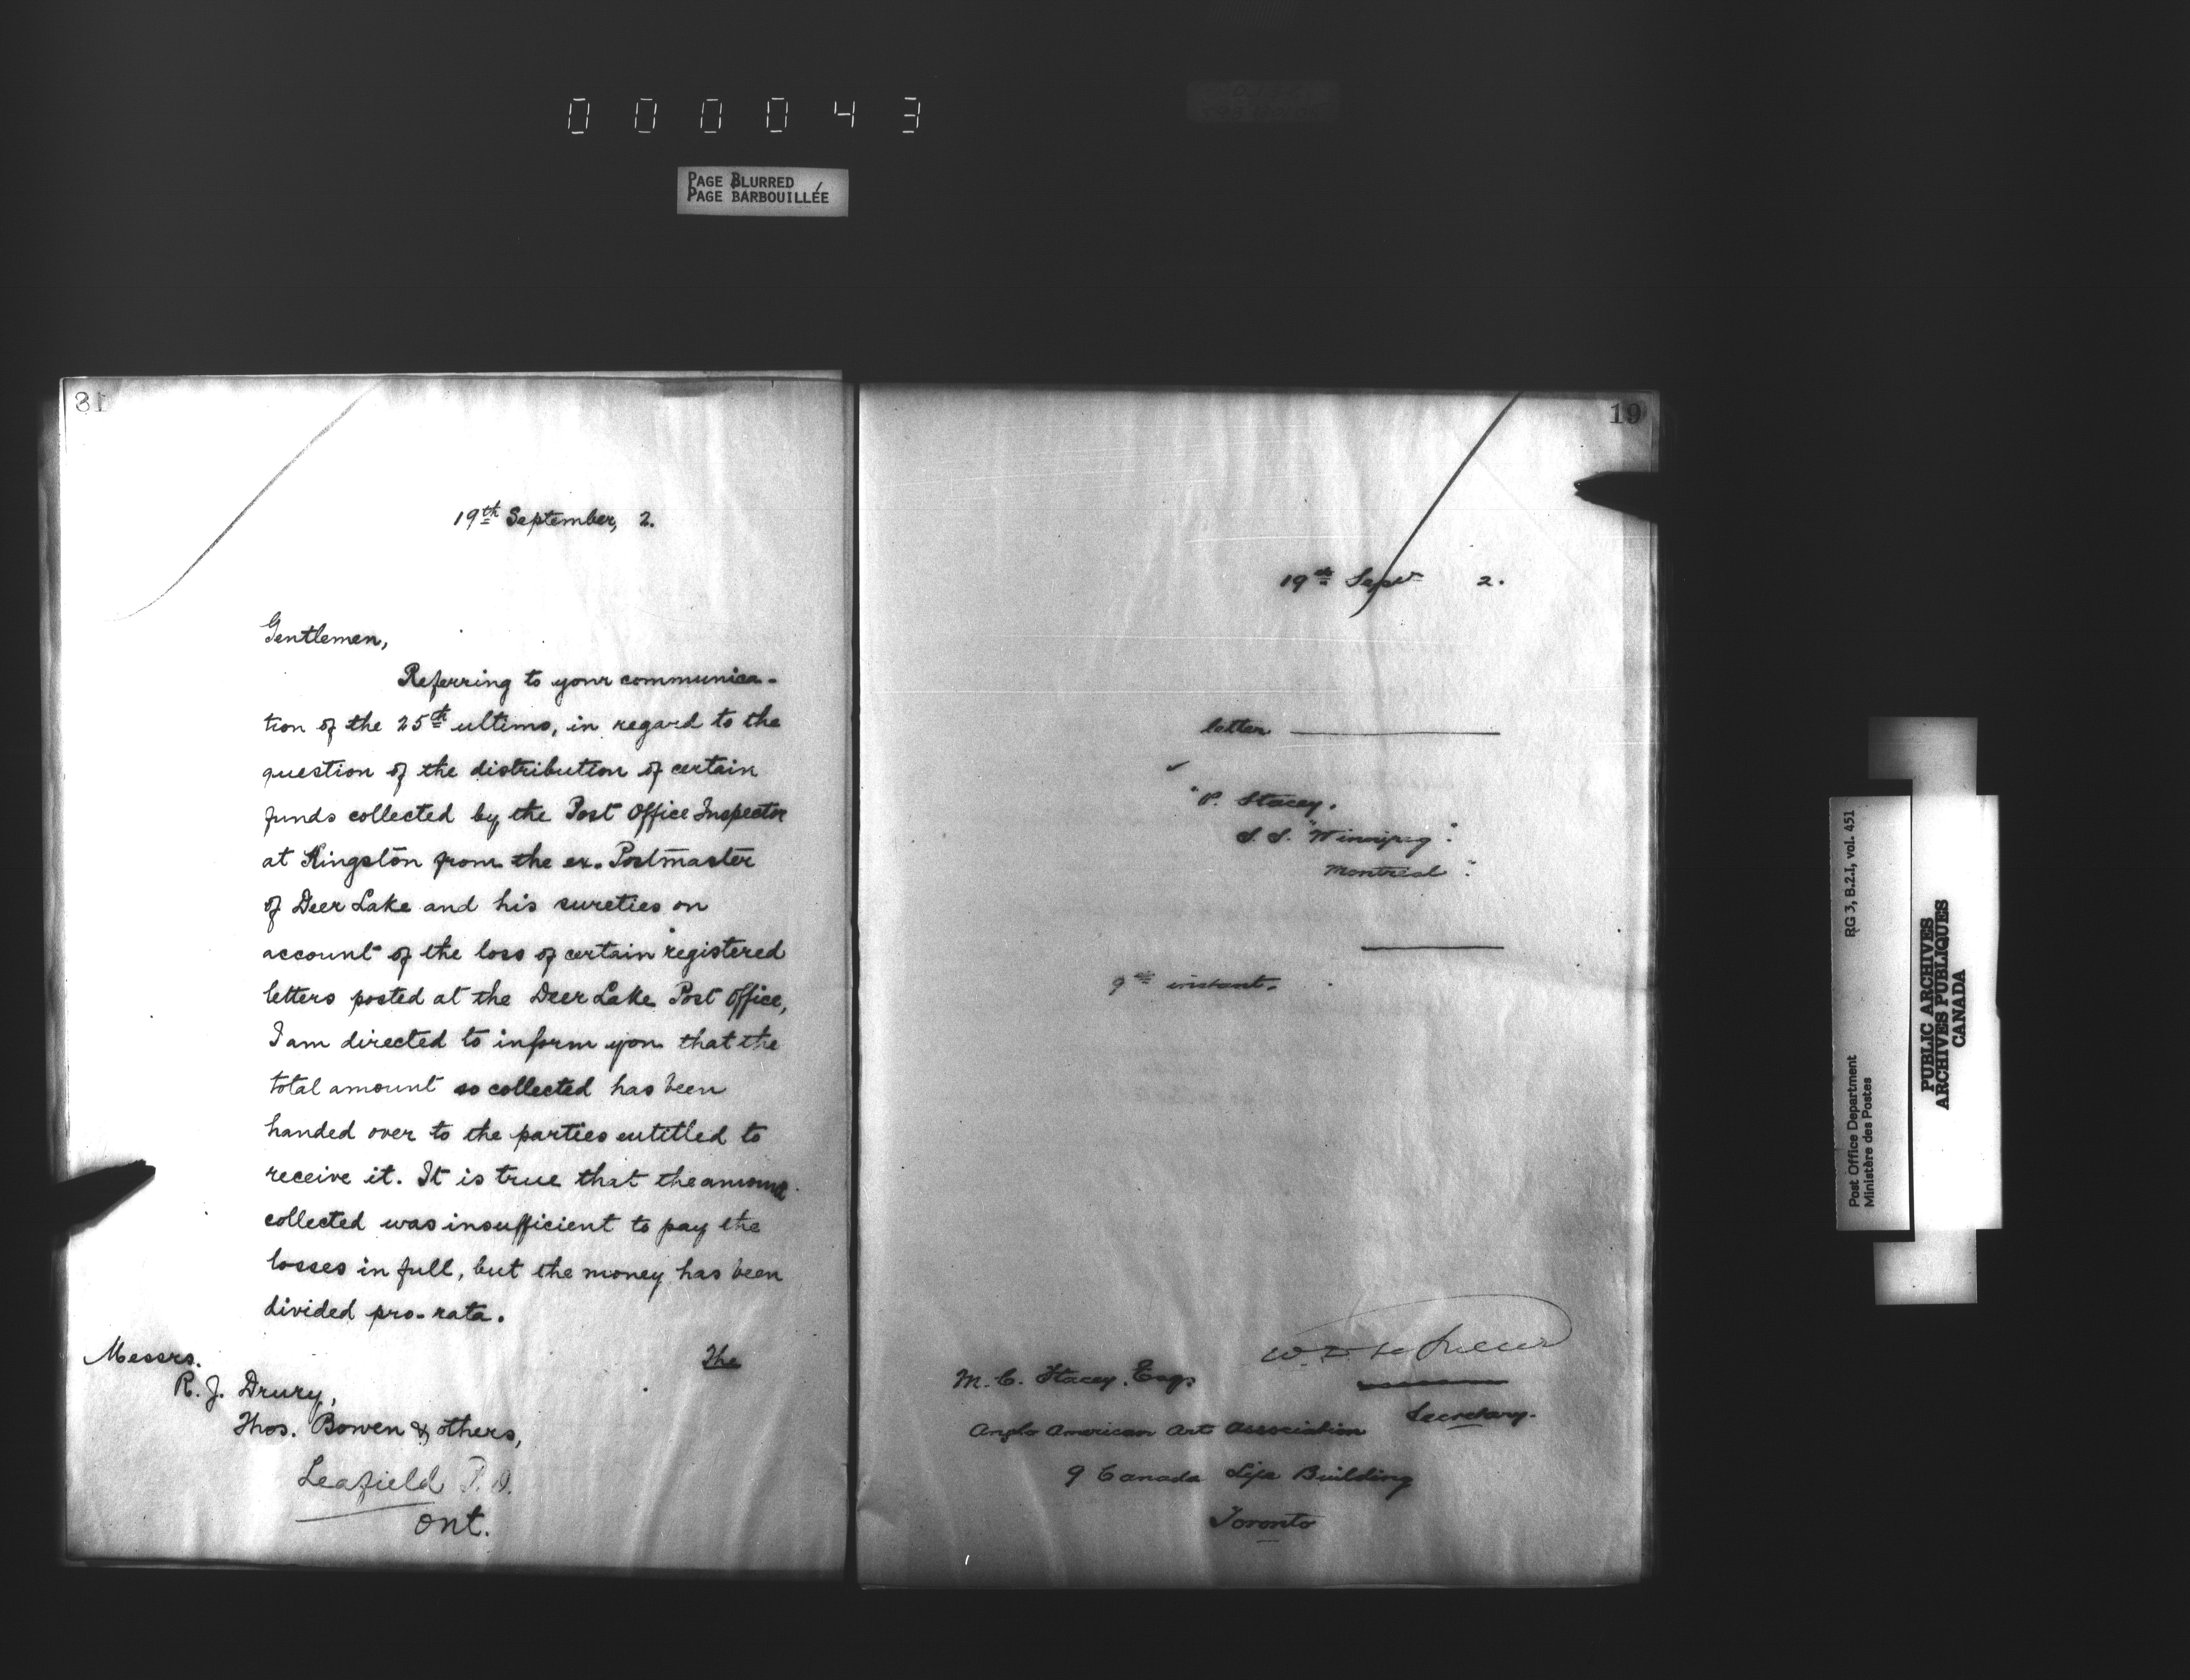 000043
PAGE BLURRED
PAGE BARBOUILLÉE
31
19th September, 2.
Gentlemen,
Referring to your communica-
tion of the 25th ultimo, in regard to the
question of the distribution of certain
funds collected by the Post Office Inspector
at Kingston from the ex-Postmaster
of Deer Lake and his sureties on
account of the loss of certain registered
letters posted at the Deer Lake Post Office,
I am directed to inform you that the
total amount so collected has been
handed over to the parties entitled to
receive it. It is true that the amount
collected was insufficient to pay the
losses in full, but the money has been
divided pro-rata.
The
Messrs.
R. J. Drury,
Thos. Bowen & others,
Leafield P.O.
Ont.
19
19th Sept 2.
letter
"P. Stacey.
S. S. "Winnipeg".
Montreal".
9th instant.
W. D. LeSueur
Secretary.
M. C. Stacey. Esqr
Anglo American Art Association
9 Canada Life Building
Toronto
RG 3, B.2.I, vol. 451
Post Office Department
Ministère des Postes
PUBLIC ARCHIVES
ARCHIVES PUBLIQUES
CANADA